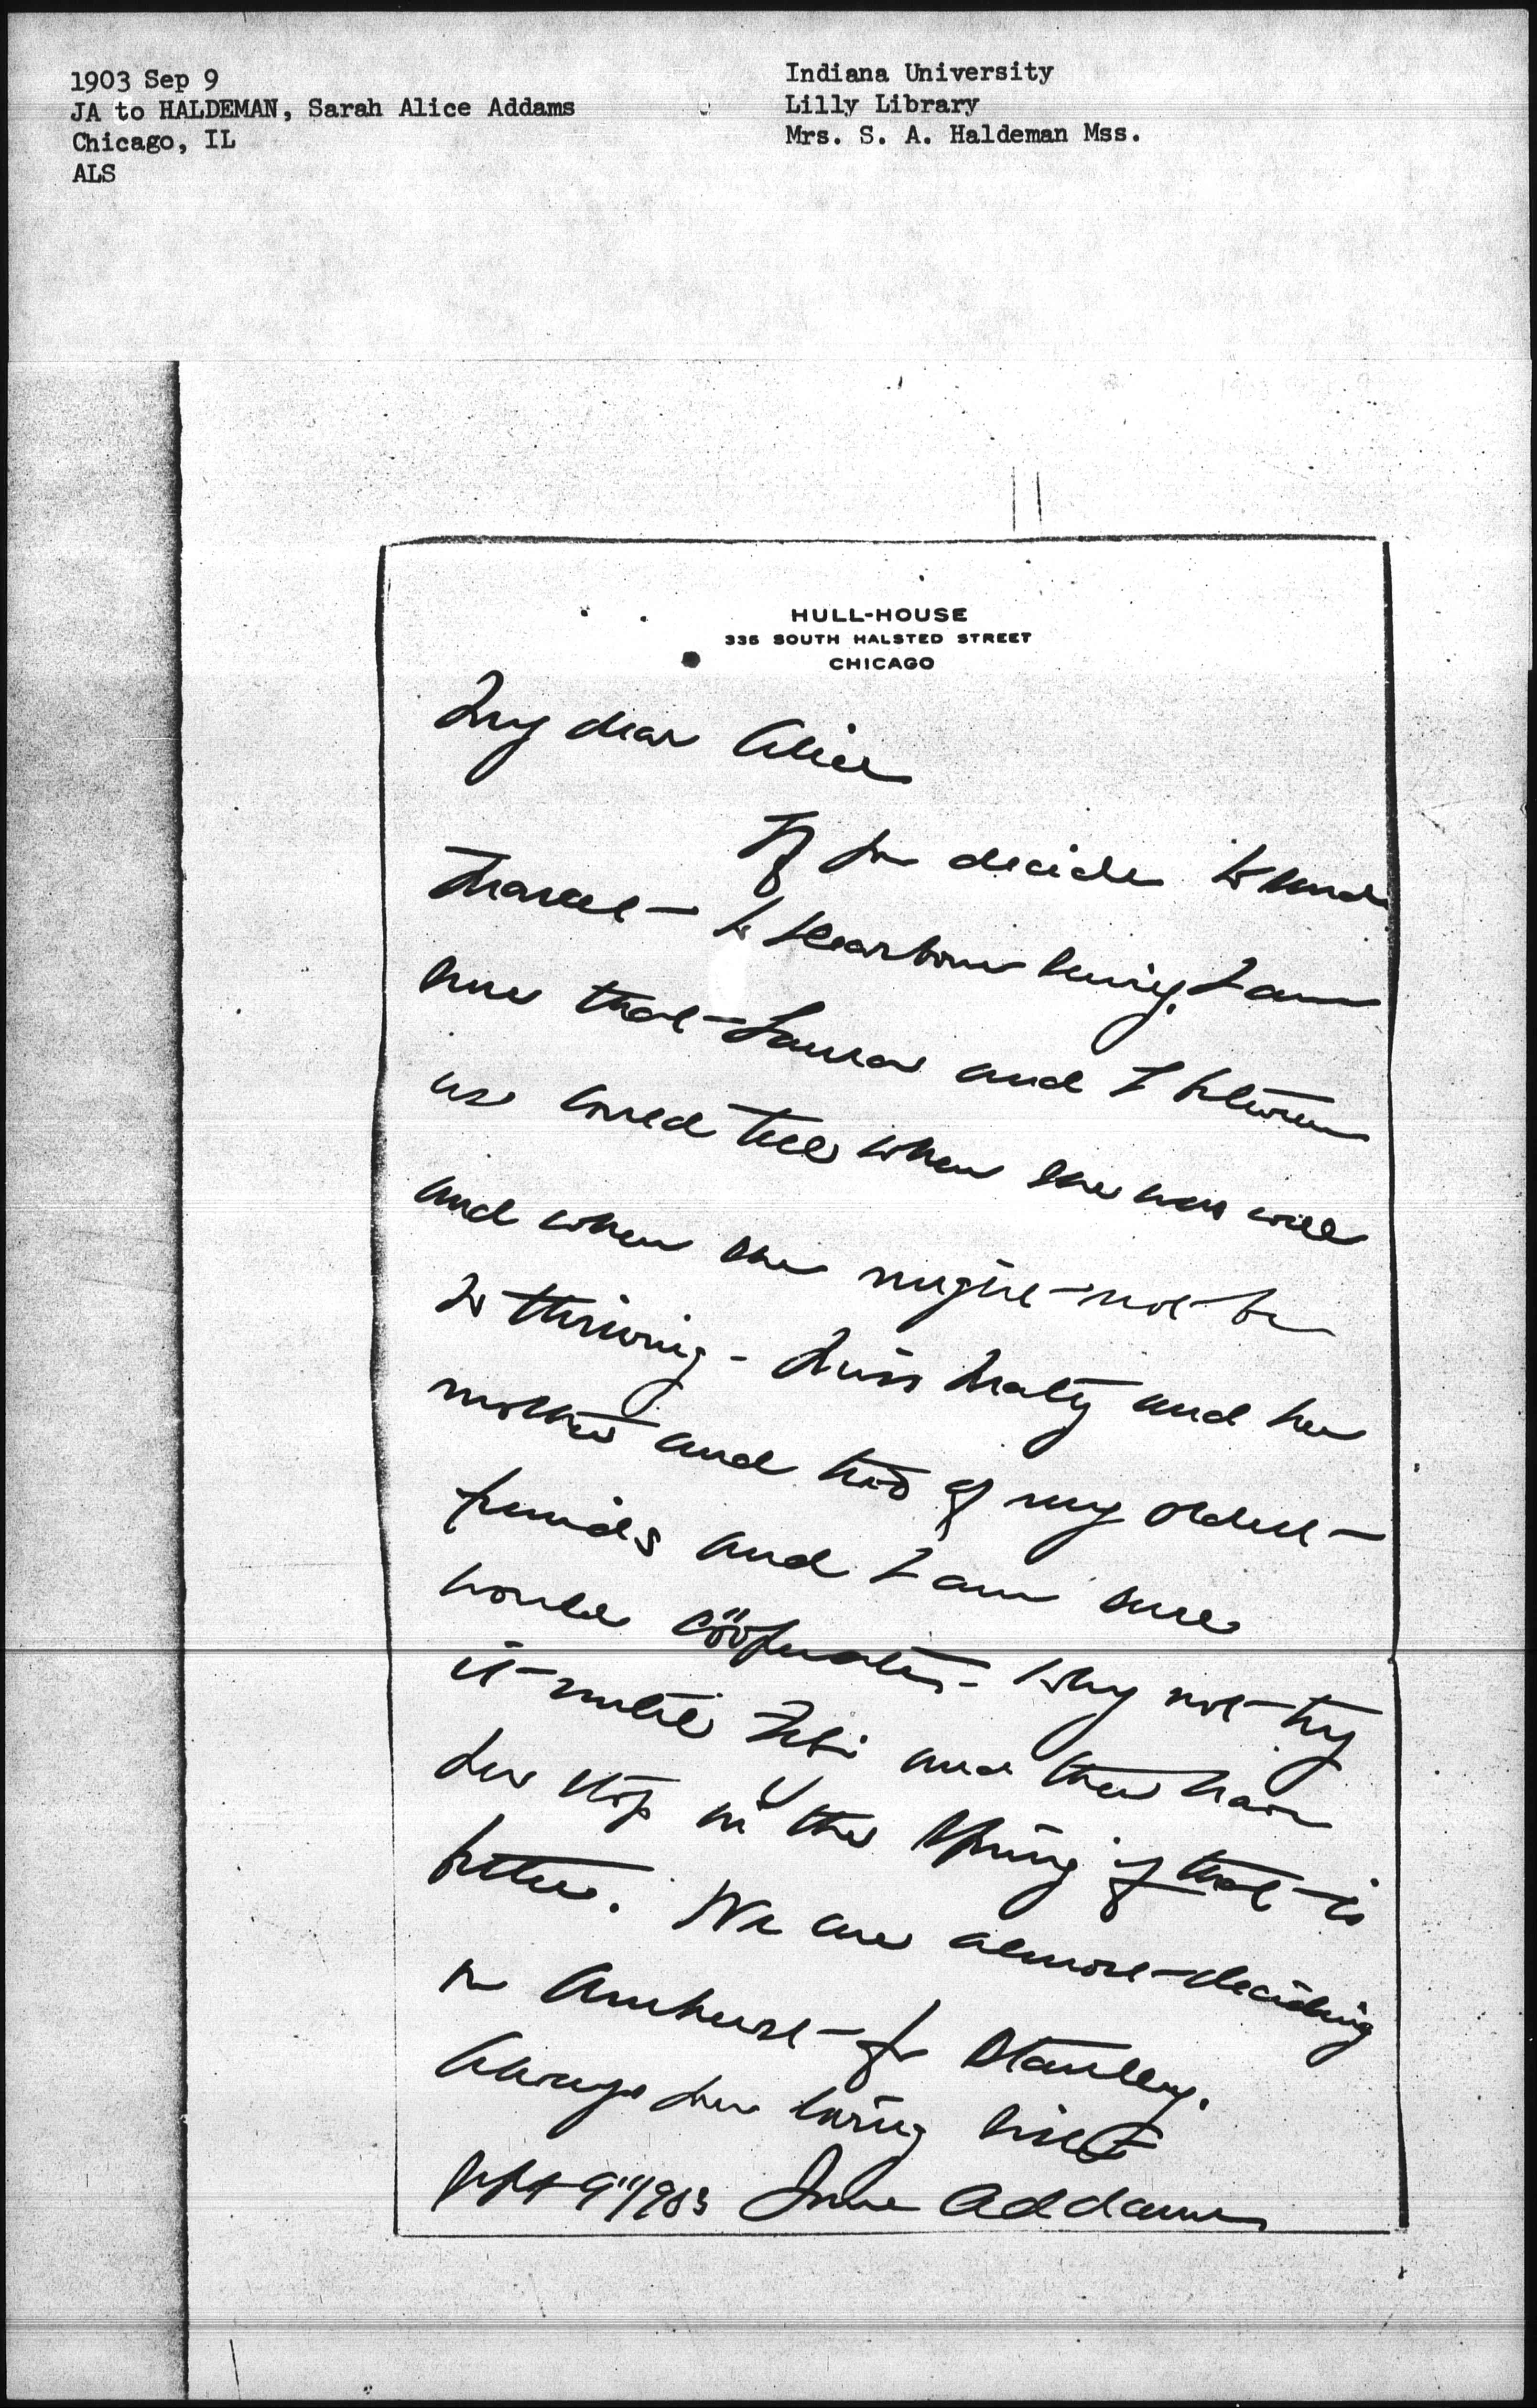 1903 Sep 9
JA to HALDEMAN, Sarah Alice Addams
Chicago, IL
ALS
Indiana University
Lilly Library
Mrs. S. A. Haldeman Mss.
HULL-HOUSE
335 SOUTH HALSTED STREET
CHICAGO
My dear Alice
If you decide to send
Marcet to Dearborn Seminary I am
sure that Laura and I between
us could tell when she was well
and when she might not be
so thriving - Miss and her
mother and two of my oldest
friends and I am sure
would coöperate - Why not try
it until Feb. and then have
her stop in the Spring if that is
better. We are almost deciding
on Amherst for Stanley.
Always your loving sister
Sept 9" 1903 Jane Addams